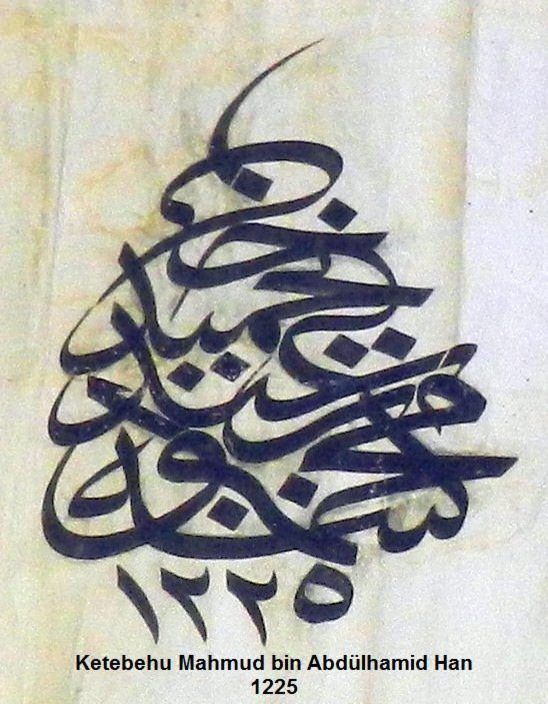 كتبه محمود بن عبد الحميد خان
١٢٢٥
Ketebehu Mahmud bin Abdülhamid Han
1225